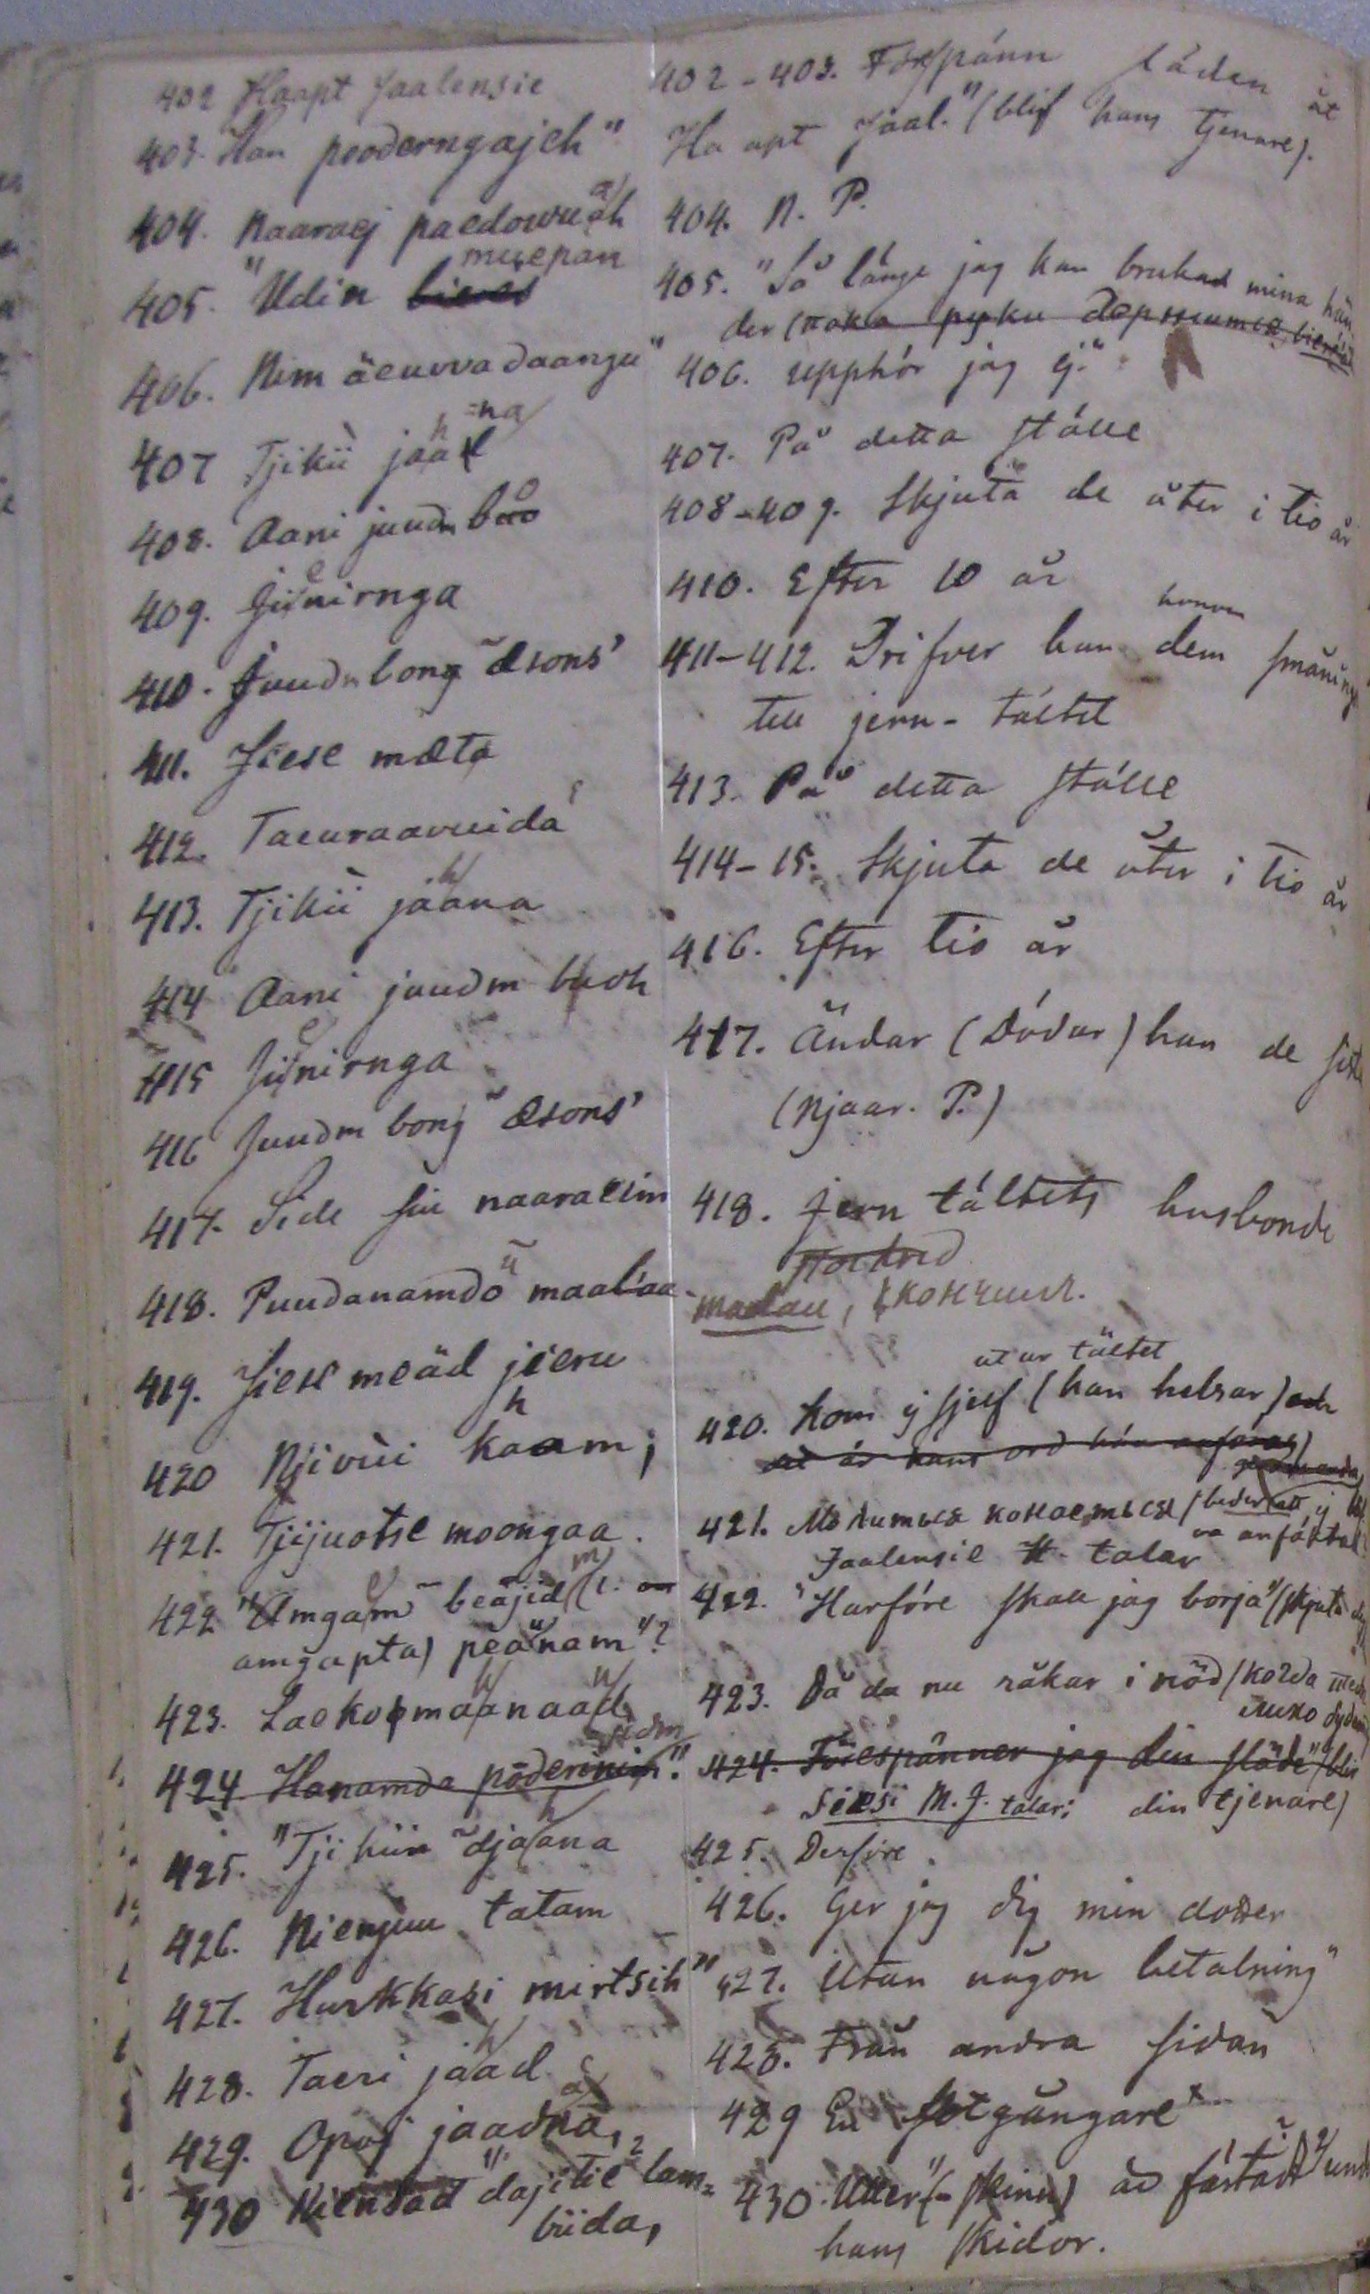 402 Haapt Jaalensie
403. Han pooderngajeh"
404. Naaraej paedowuah
muepan
405. "Udin
406. Nim äeuvvadaangu"
407 Tjikii jaahna
408. Aani juudm bo
409. Jienirnga
410. Juudm bong æsons'
411. Jiese mæta
412. Taeuraavuida
413. Tjikii jahana
414 Aani juudm buoh
415 Jienirnga
416 Juudm bong æsons'
417. Side siu naaraeim
418. Puudanamdo maal'aa
419. Jiese meäd jieru
420 Njivüi kaam;
421. Tjijuotse moongaa.
422 "Amgam beäjid (l.
amgapta) peänam"?
423. Laekopmaanaad
424 Hanamda
425. "Tjikiin djahana
426. Nienjuu tatam
427. Hurkkasi mirtsih"
428. Taeri jaad
429. Opoj jaadna,
430 dajitie lam=
büda,
402-403. Förspänn släden åt
Haapt Jaal." (blif hans tjenare).
404. N. P.
405. "Så länge jag kan bruka mina hän
der (пока руку держится
406. upphör jag ej."
407. På detta ställe
408-409. Skjuta de åter i tio år
410. Efter 10 år
honom
411-412. Drifver han dem småning
till jern-tältet
413. På detta ställe
414-15. Skjuta de åter i tio år
416. Efter tio år
417. Ändar (Dödar) han de sista
(Njaar. P.)
418. Jern tältets husbonde
maalau, кончил.
ut ur tältet
420. Kom ej sjelf (han helsar)
421. Молится кончается (beder att ej
Jaalensie H. talar
422. "Hvarföre skall jag borja" (skjuta
423. Då du nu råkar i nöd (когда
424. Förespänner jag din släde" (blir
Siesi M. J. talar: din tjenare)
425. Derföre
426. Ger jag dig min dotter
427. Utan någon betalning"
428. Från andra sidan
429 En fotgångare
430. Utter (-skinn) är fästadt und
hans skidor.